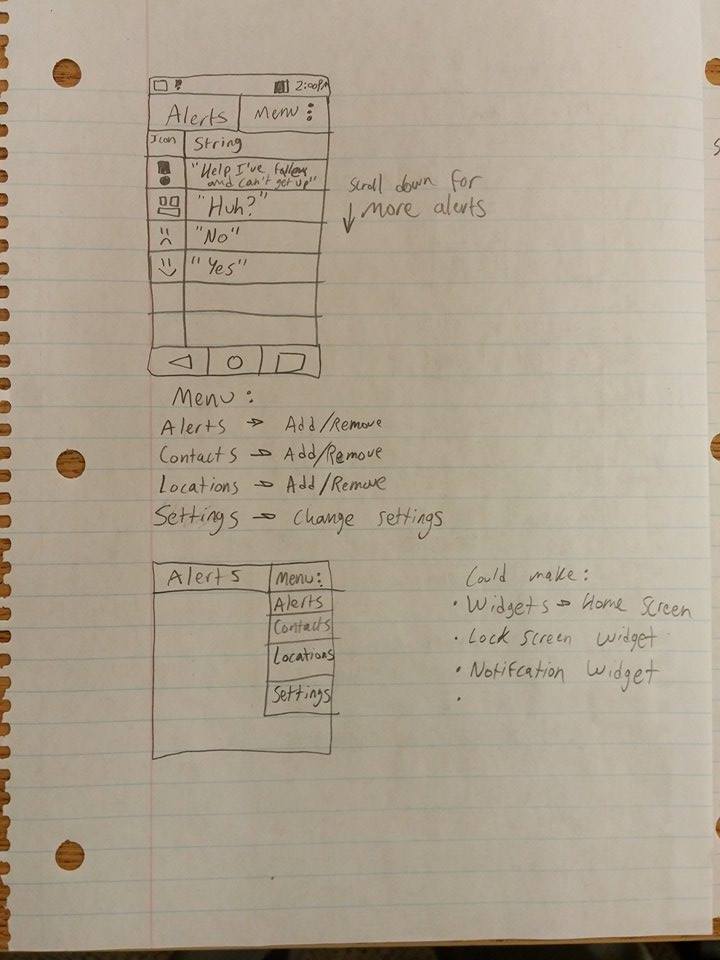 2:00PM
Alerts Menu
Icon String
"Help I've fallen
and can't get up"
"Huh?"
"No"
"Yes"
scroll down for
more alerts
Menu:
Alerts → Add/Remove
Contacts → Add/Remove
Locations → Add/Remove
Settings → Change settings
Alerts Menu:
Alerts
Contacts
Locations
Settings
Could make:
• Widgets → Home Screen
• Lock Screen Widget
• Notifcation Widget
•